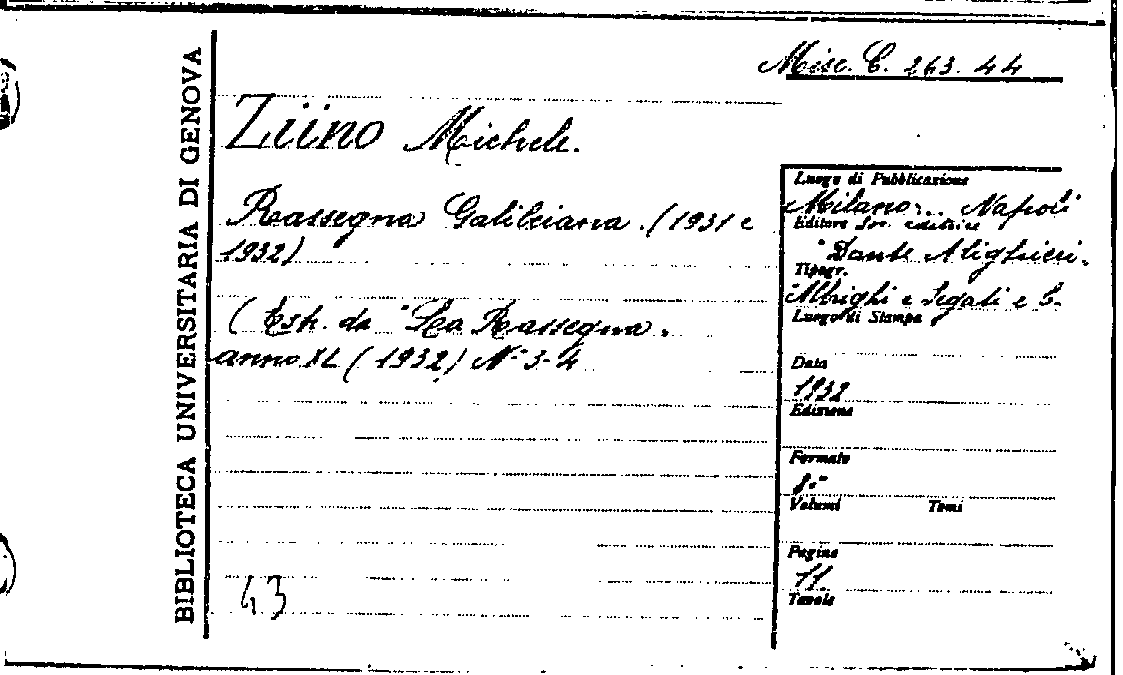 BIBLIOTECA UNIVERSITARIA DI GENOVA
Misc. C. 263. 44
Ziino Michele.
Rassegna Galileiana. (1931 e
1932)
(Estr. da "La Rassegna.
anno XL (1932) N° 3-4
43
Luogo di Pubblicazione
Milano... Napoli
Editore Soc. editrice
"Dante Alighieri.
Tipogr.
Albrighi e Segati e C.
Luogo di Stampa
Data
1932
Edizione
Formato
8.°
Volumi Tomi
Pagine
11.
Tavole